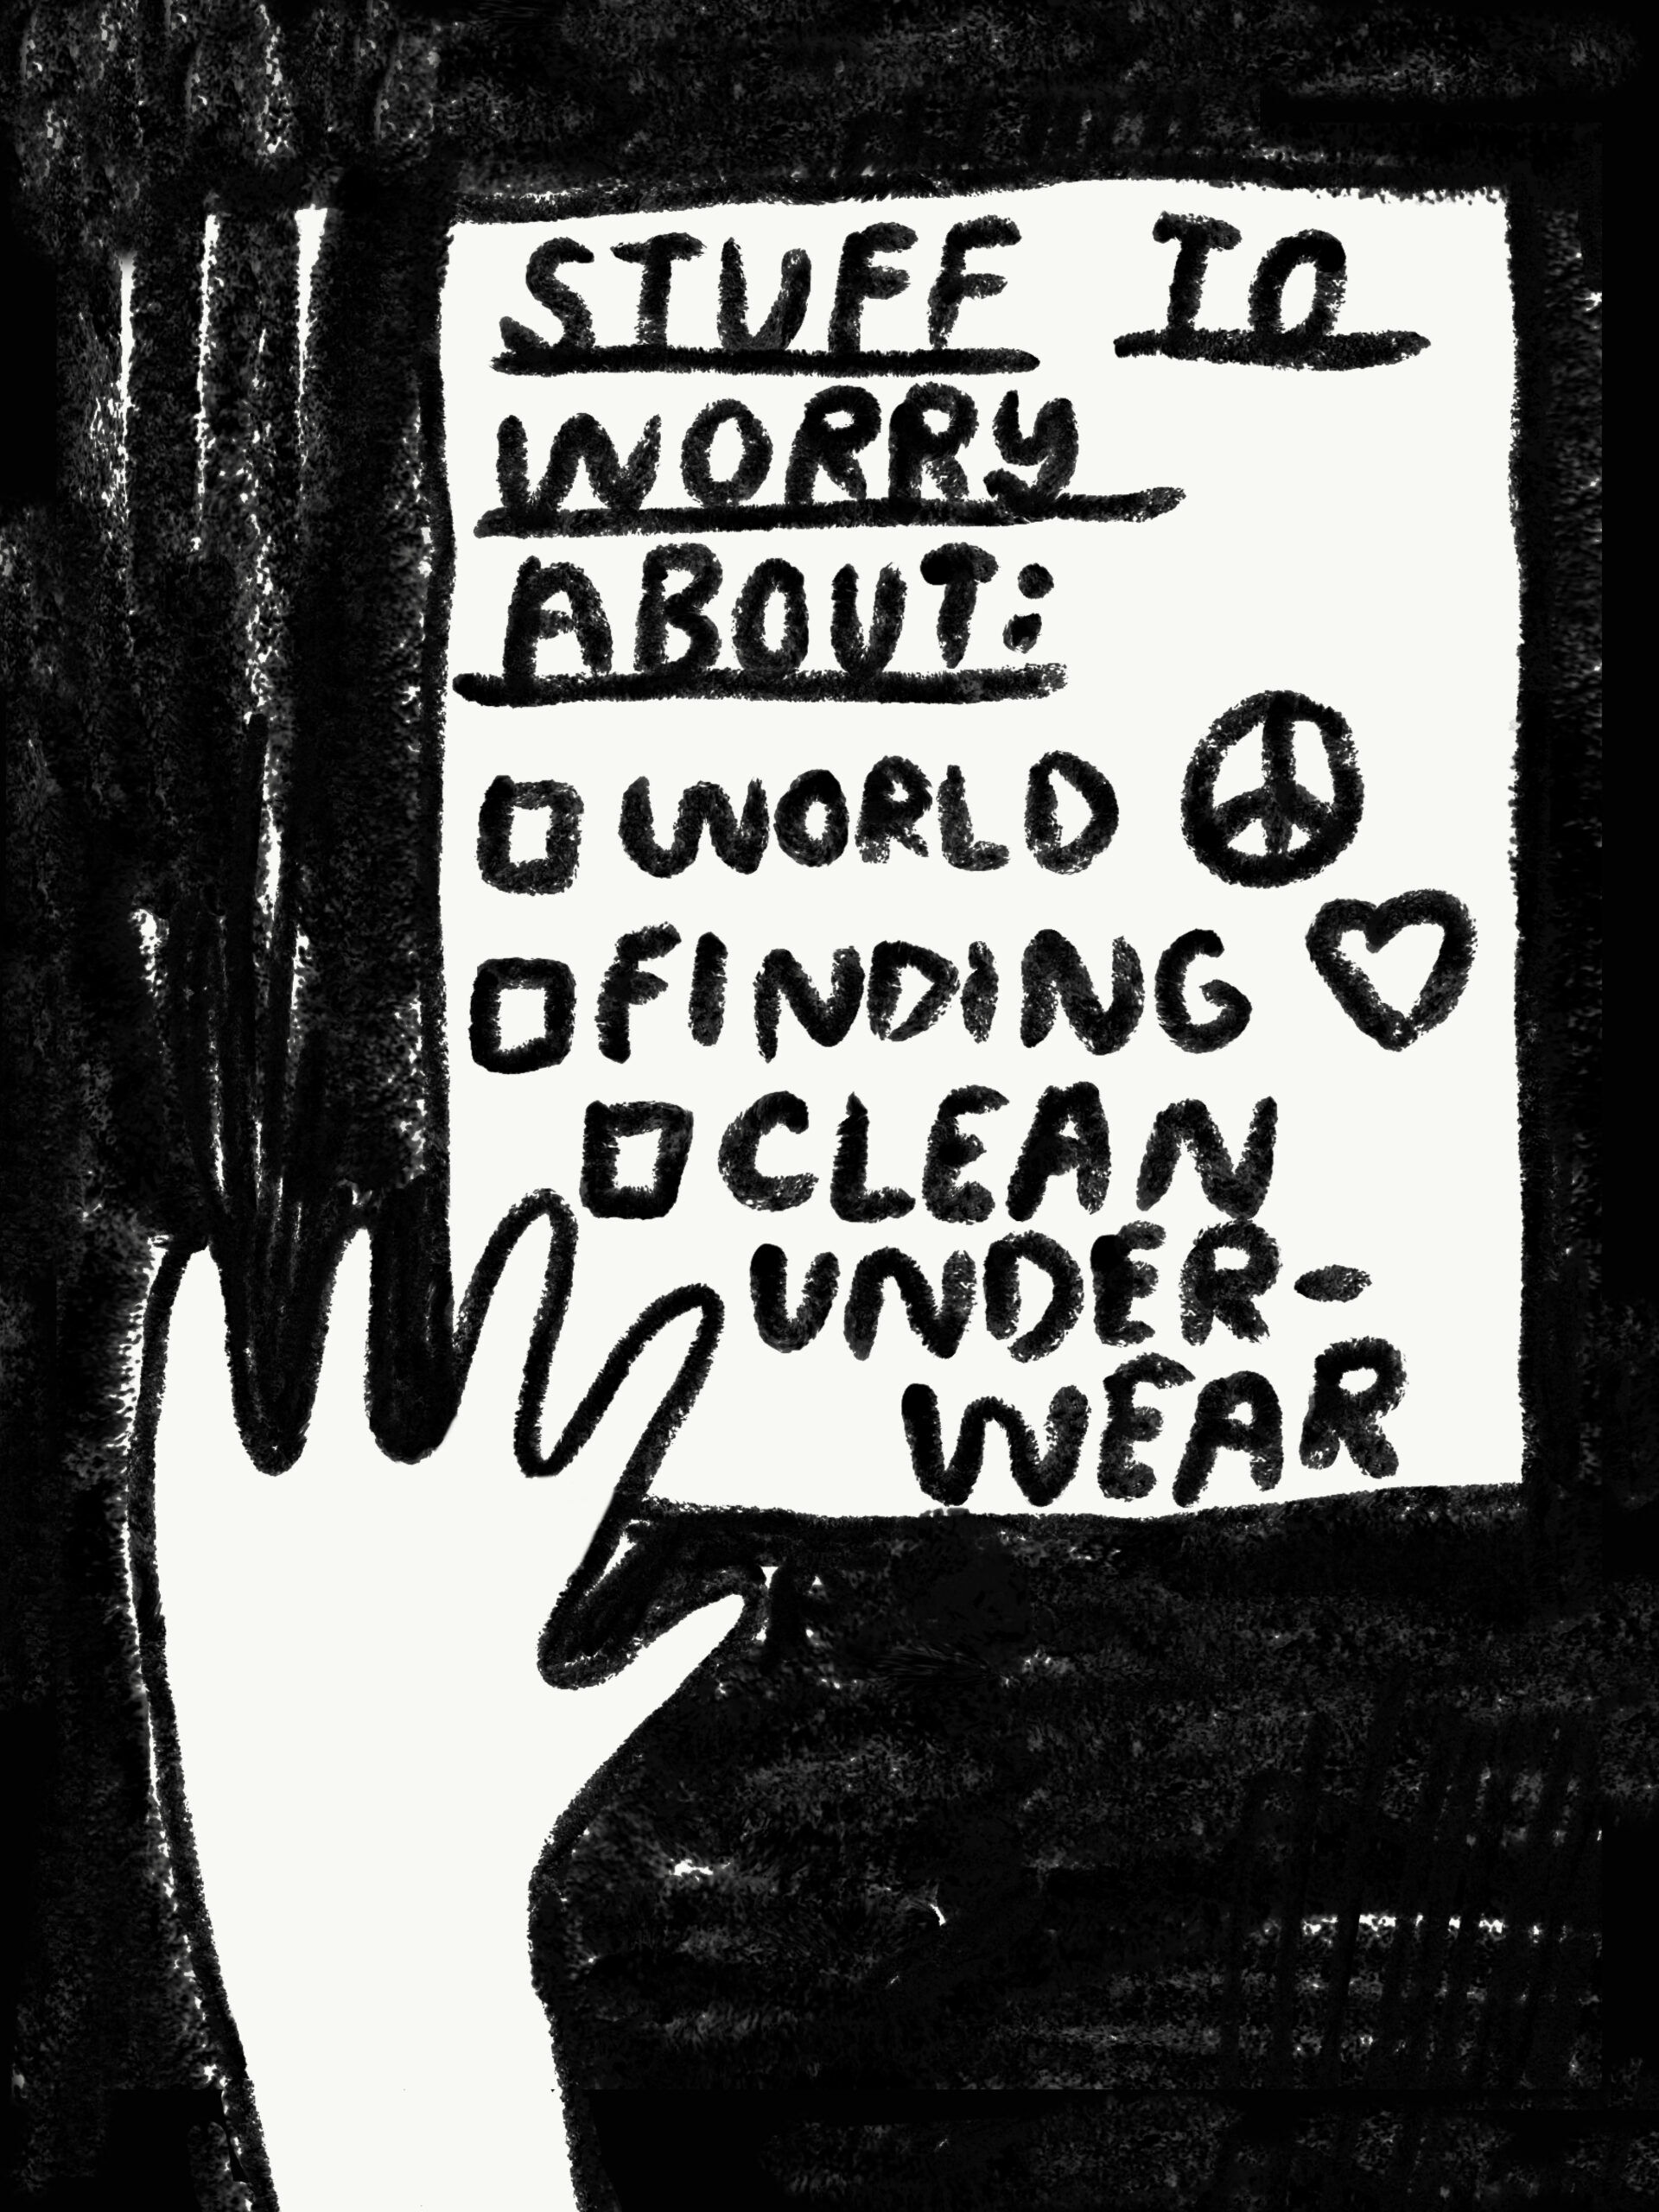 STUFF TO
WORRY
ABOUT:
WORLD
FINDING
CLEAN
UNDER-
WEAR